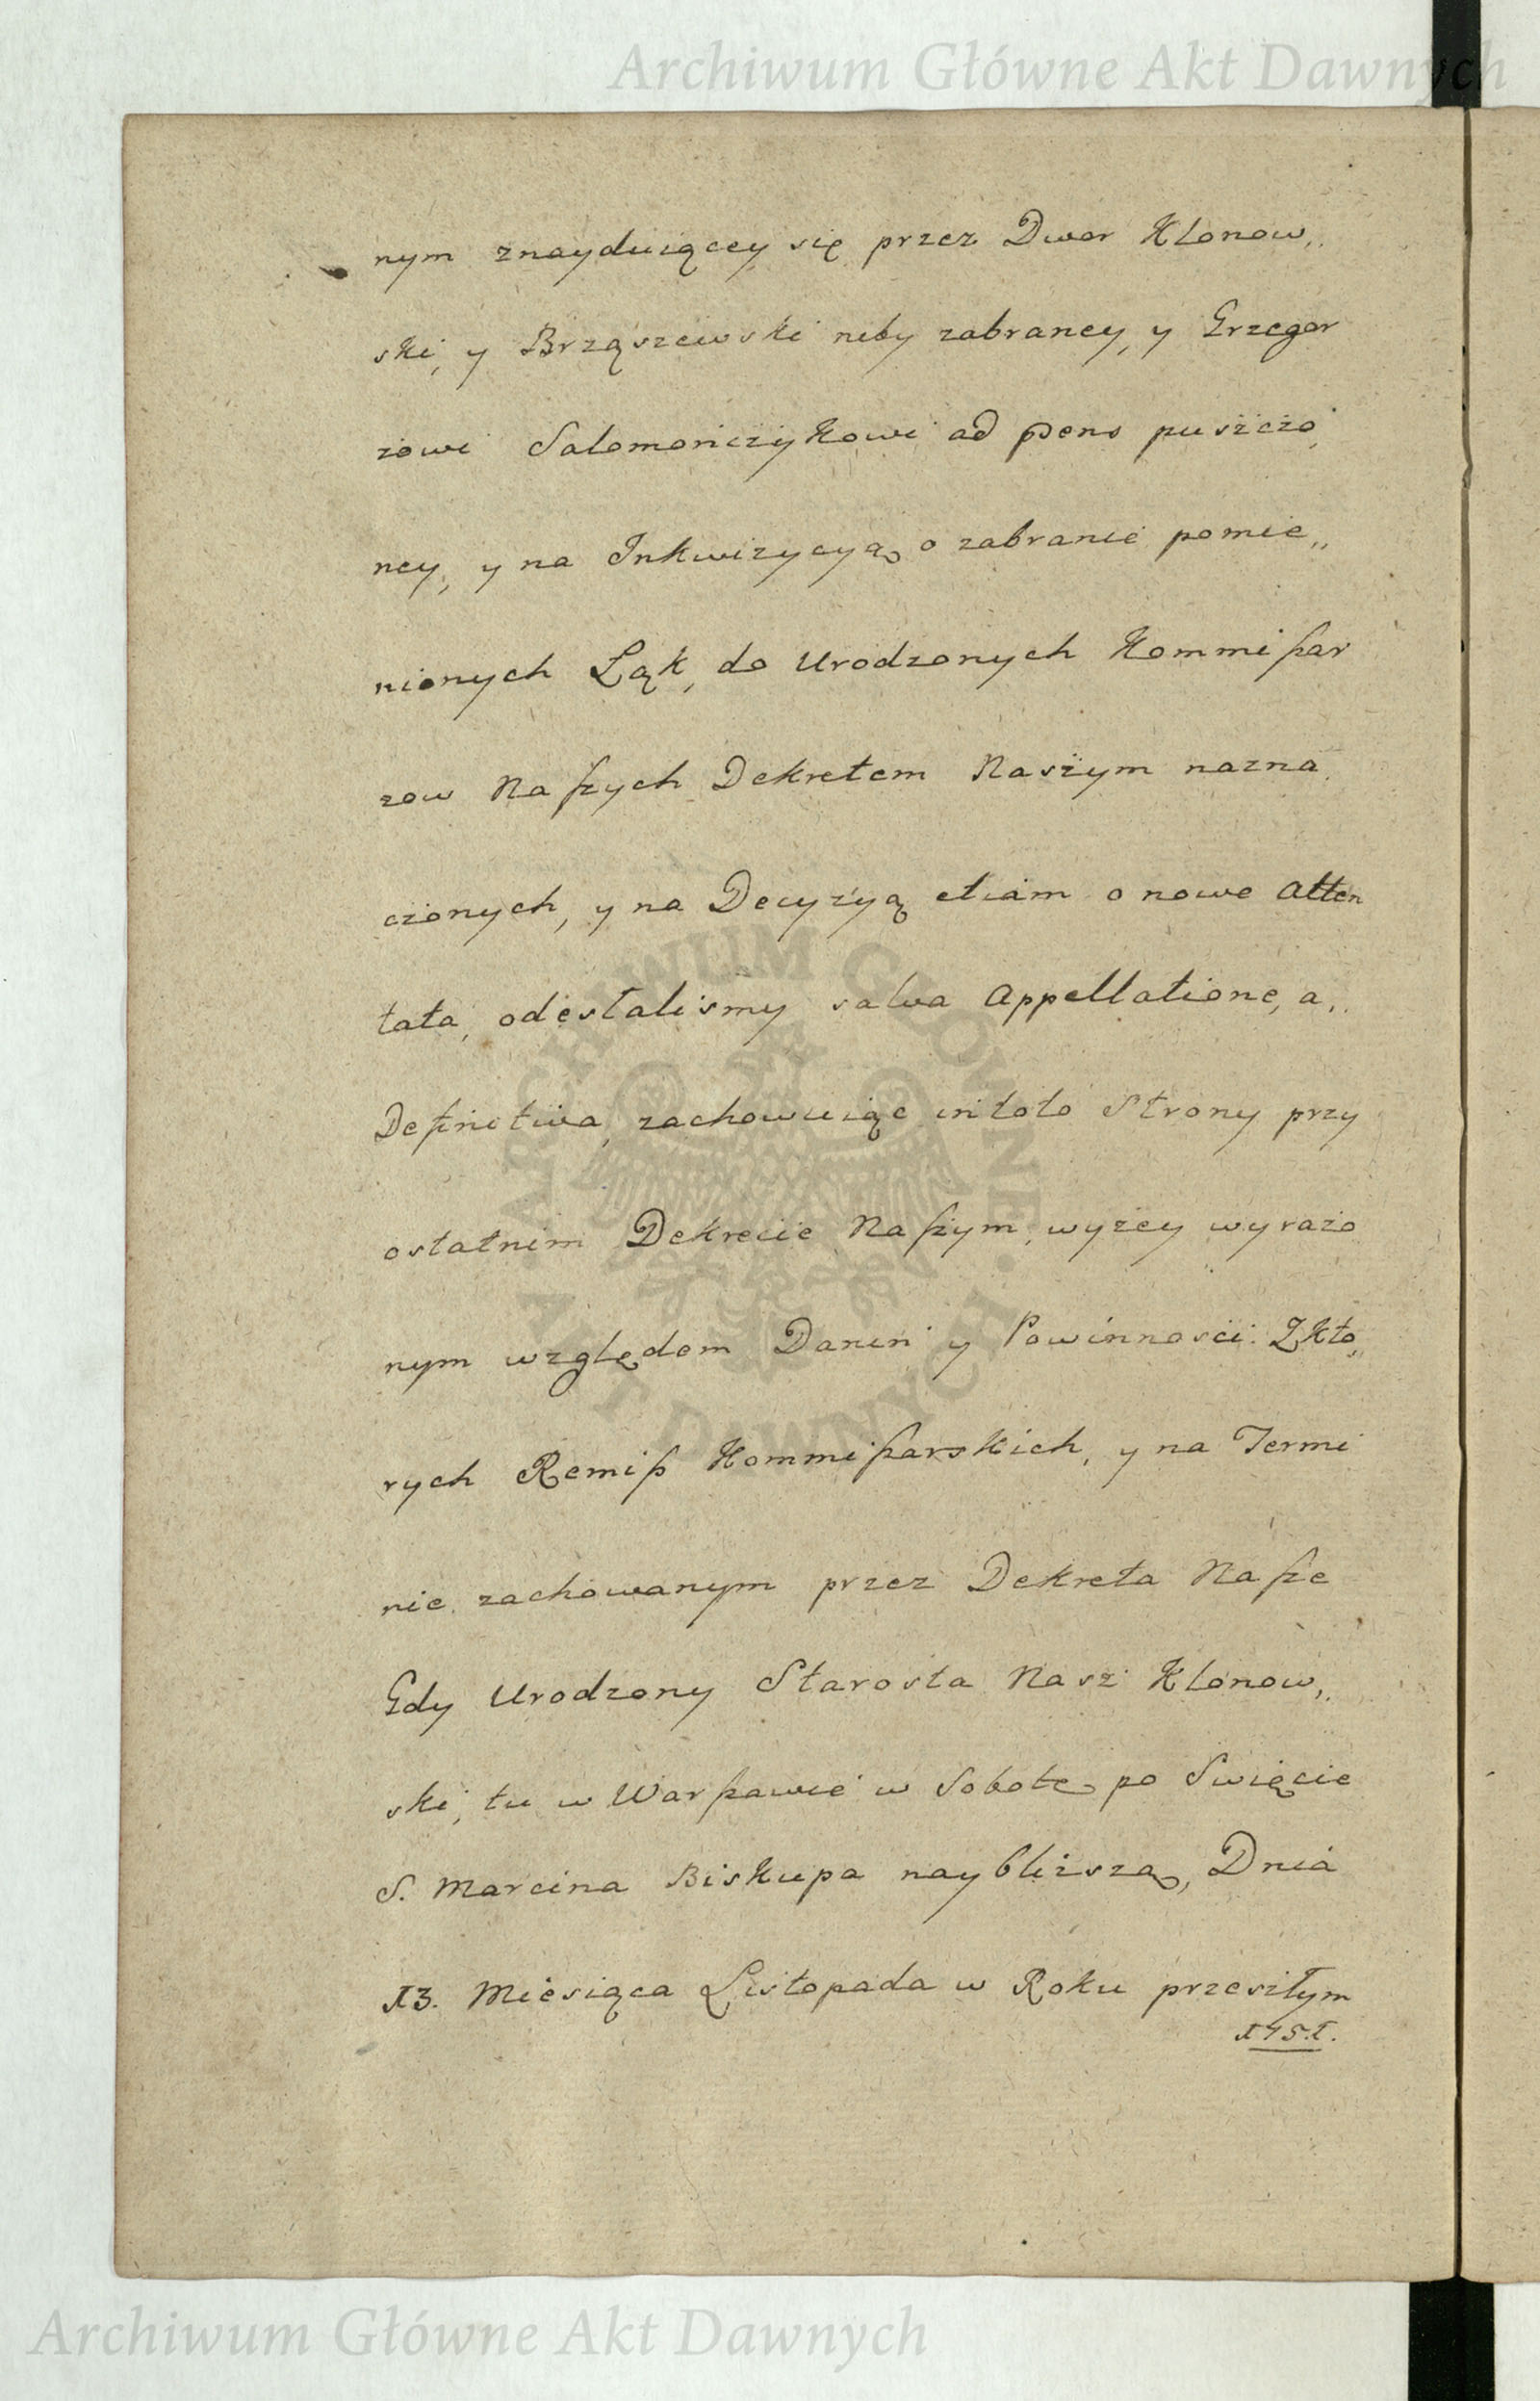 Archiwum Główne Akt Dawnych
nym znayduiącey się przez Dwor Klonow,,
ski, y Brząszewski niby zabraney, y Grzegor
zowi Salomończykowi ad pens puszczo,
ney, y na Inkwizycyą o zabranie pomie,,
nionych Łąk, do Urodzonych Kommißar
zow Naßzych Dekretem Naszym nazna,
czonych, y na Decyzyą etiam o nowe atten
tata, odesłalismy salva Appellatione, a,,
Definitiva, zachowuiąc in toto Strony przy
ostatnim Dekrecie Naßzym, wyżey wyrażo
nym względem Danin y Powinnosci. Z Kto,,
rych Remiß Kommißarskich, y na Termi
nie zachowanym przez Dekreta Naßze
Gdy Urodzony Starosta Nasz Klonow,,
ski, tu w Warßawie w Sobotę po Swięcie
S. Marcina Biskupa naybliższą, Dnia
13. Miesiąca Listopada w Roku przeszłym
ARCHIWUM GŁÓWNE · AKT DAWNYCH ·
Archiwum Główne Akt Dawnych